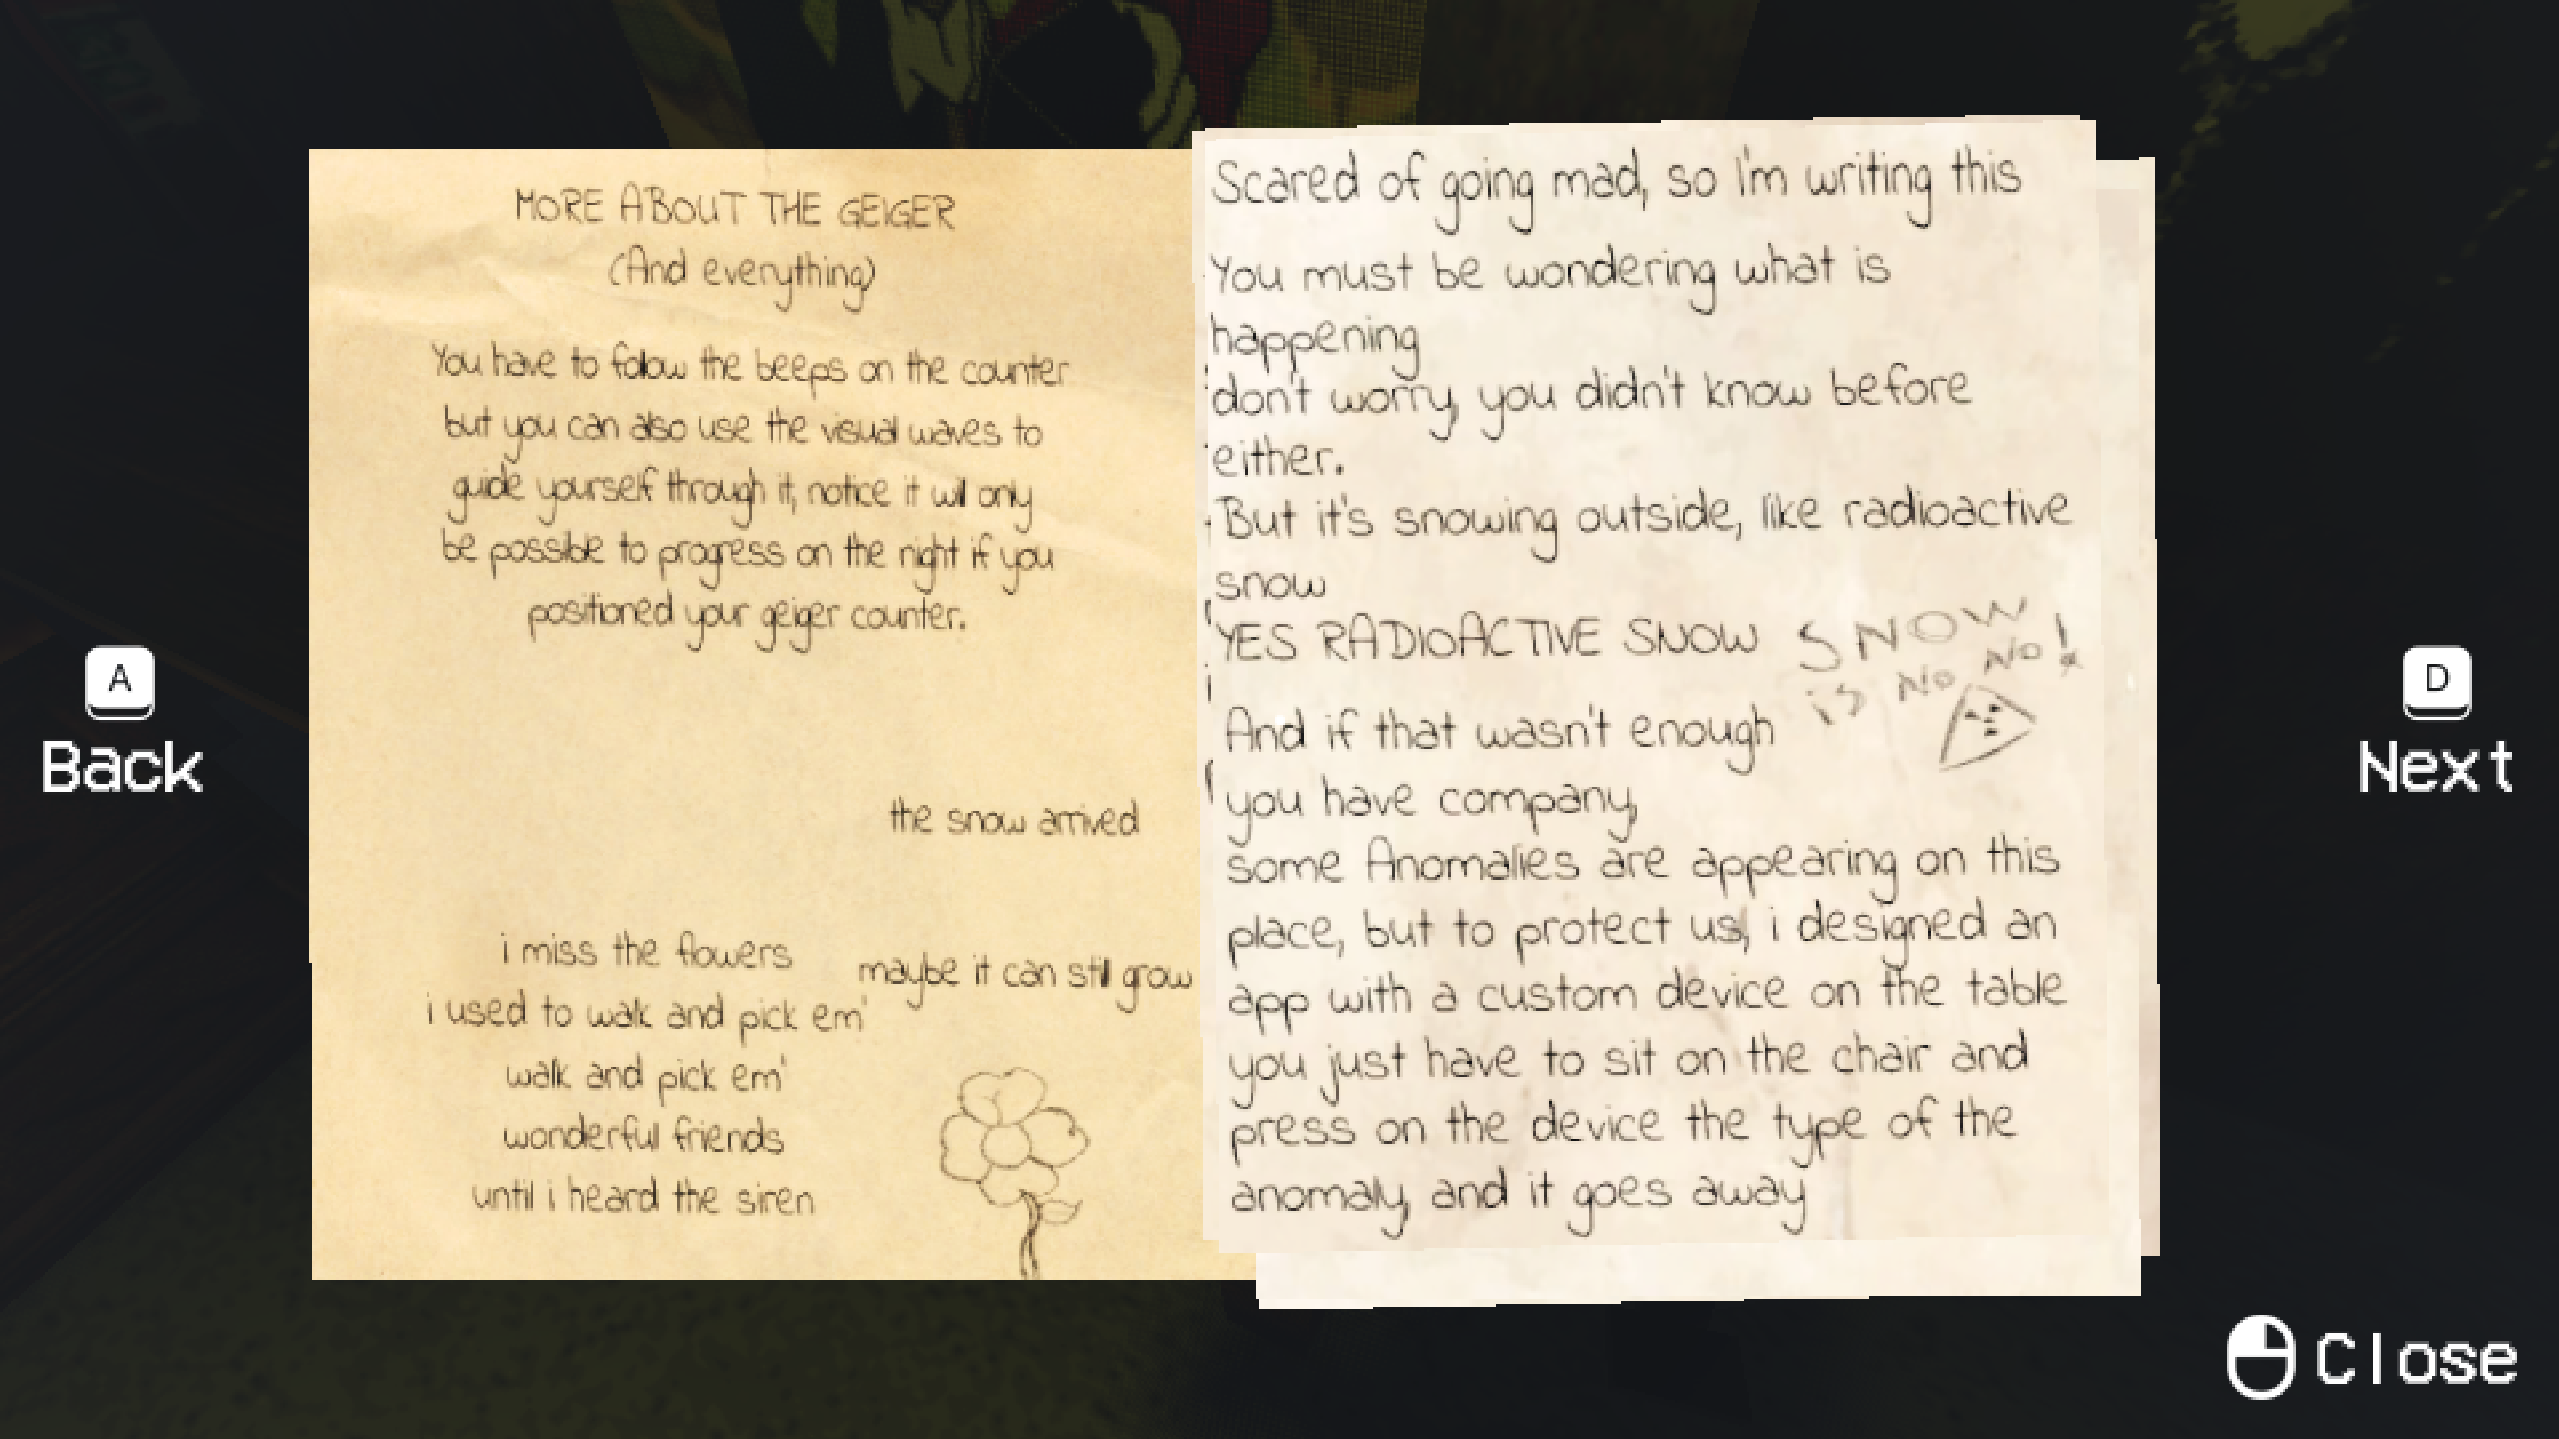 MORE ABOUT THE GEIGER
(And everything)
You have to folow the beeps on the counter
but you can also use the visual waves to
guide yourself through it, notice it will only
be possible to progress on the right if you
positioned your geiger counter.
the snow arrived
i miss the flowers
maybe it can still grow
i used to walk and pick em'
walk and pick em'
wonderful friends
until i heard the siren
Scared of going mad, so I'm writing this
You must be wondering what is
happening
don't worry, you didn't know before
either.
But it's snowing outside, like radioactive
snow
YES RADIOACTIVE SNOW
SNOW
is No No!
And if that wasn't enough
you have company,
some Anomalies are appearing on this
place, but to protect us, i designed an
app with a custom device on the table
you just have to sit on the chair and
press on the device the type of the
anomaly, and it goes away
A
Back
D
Next
Close